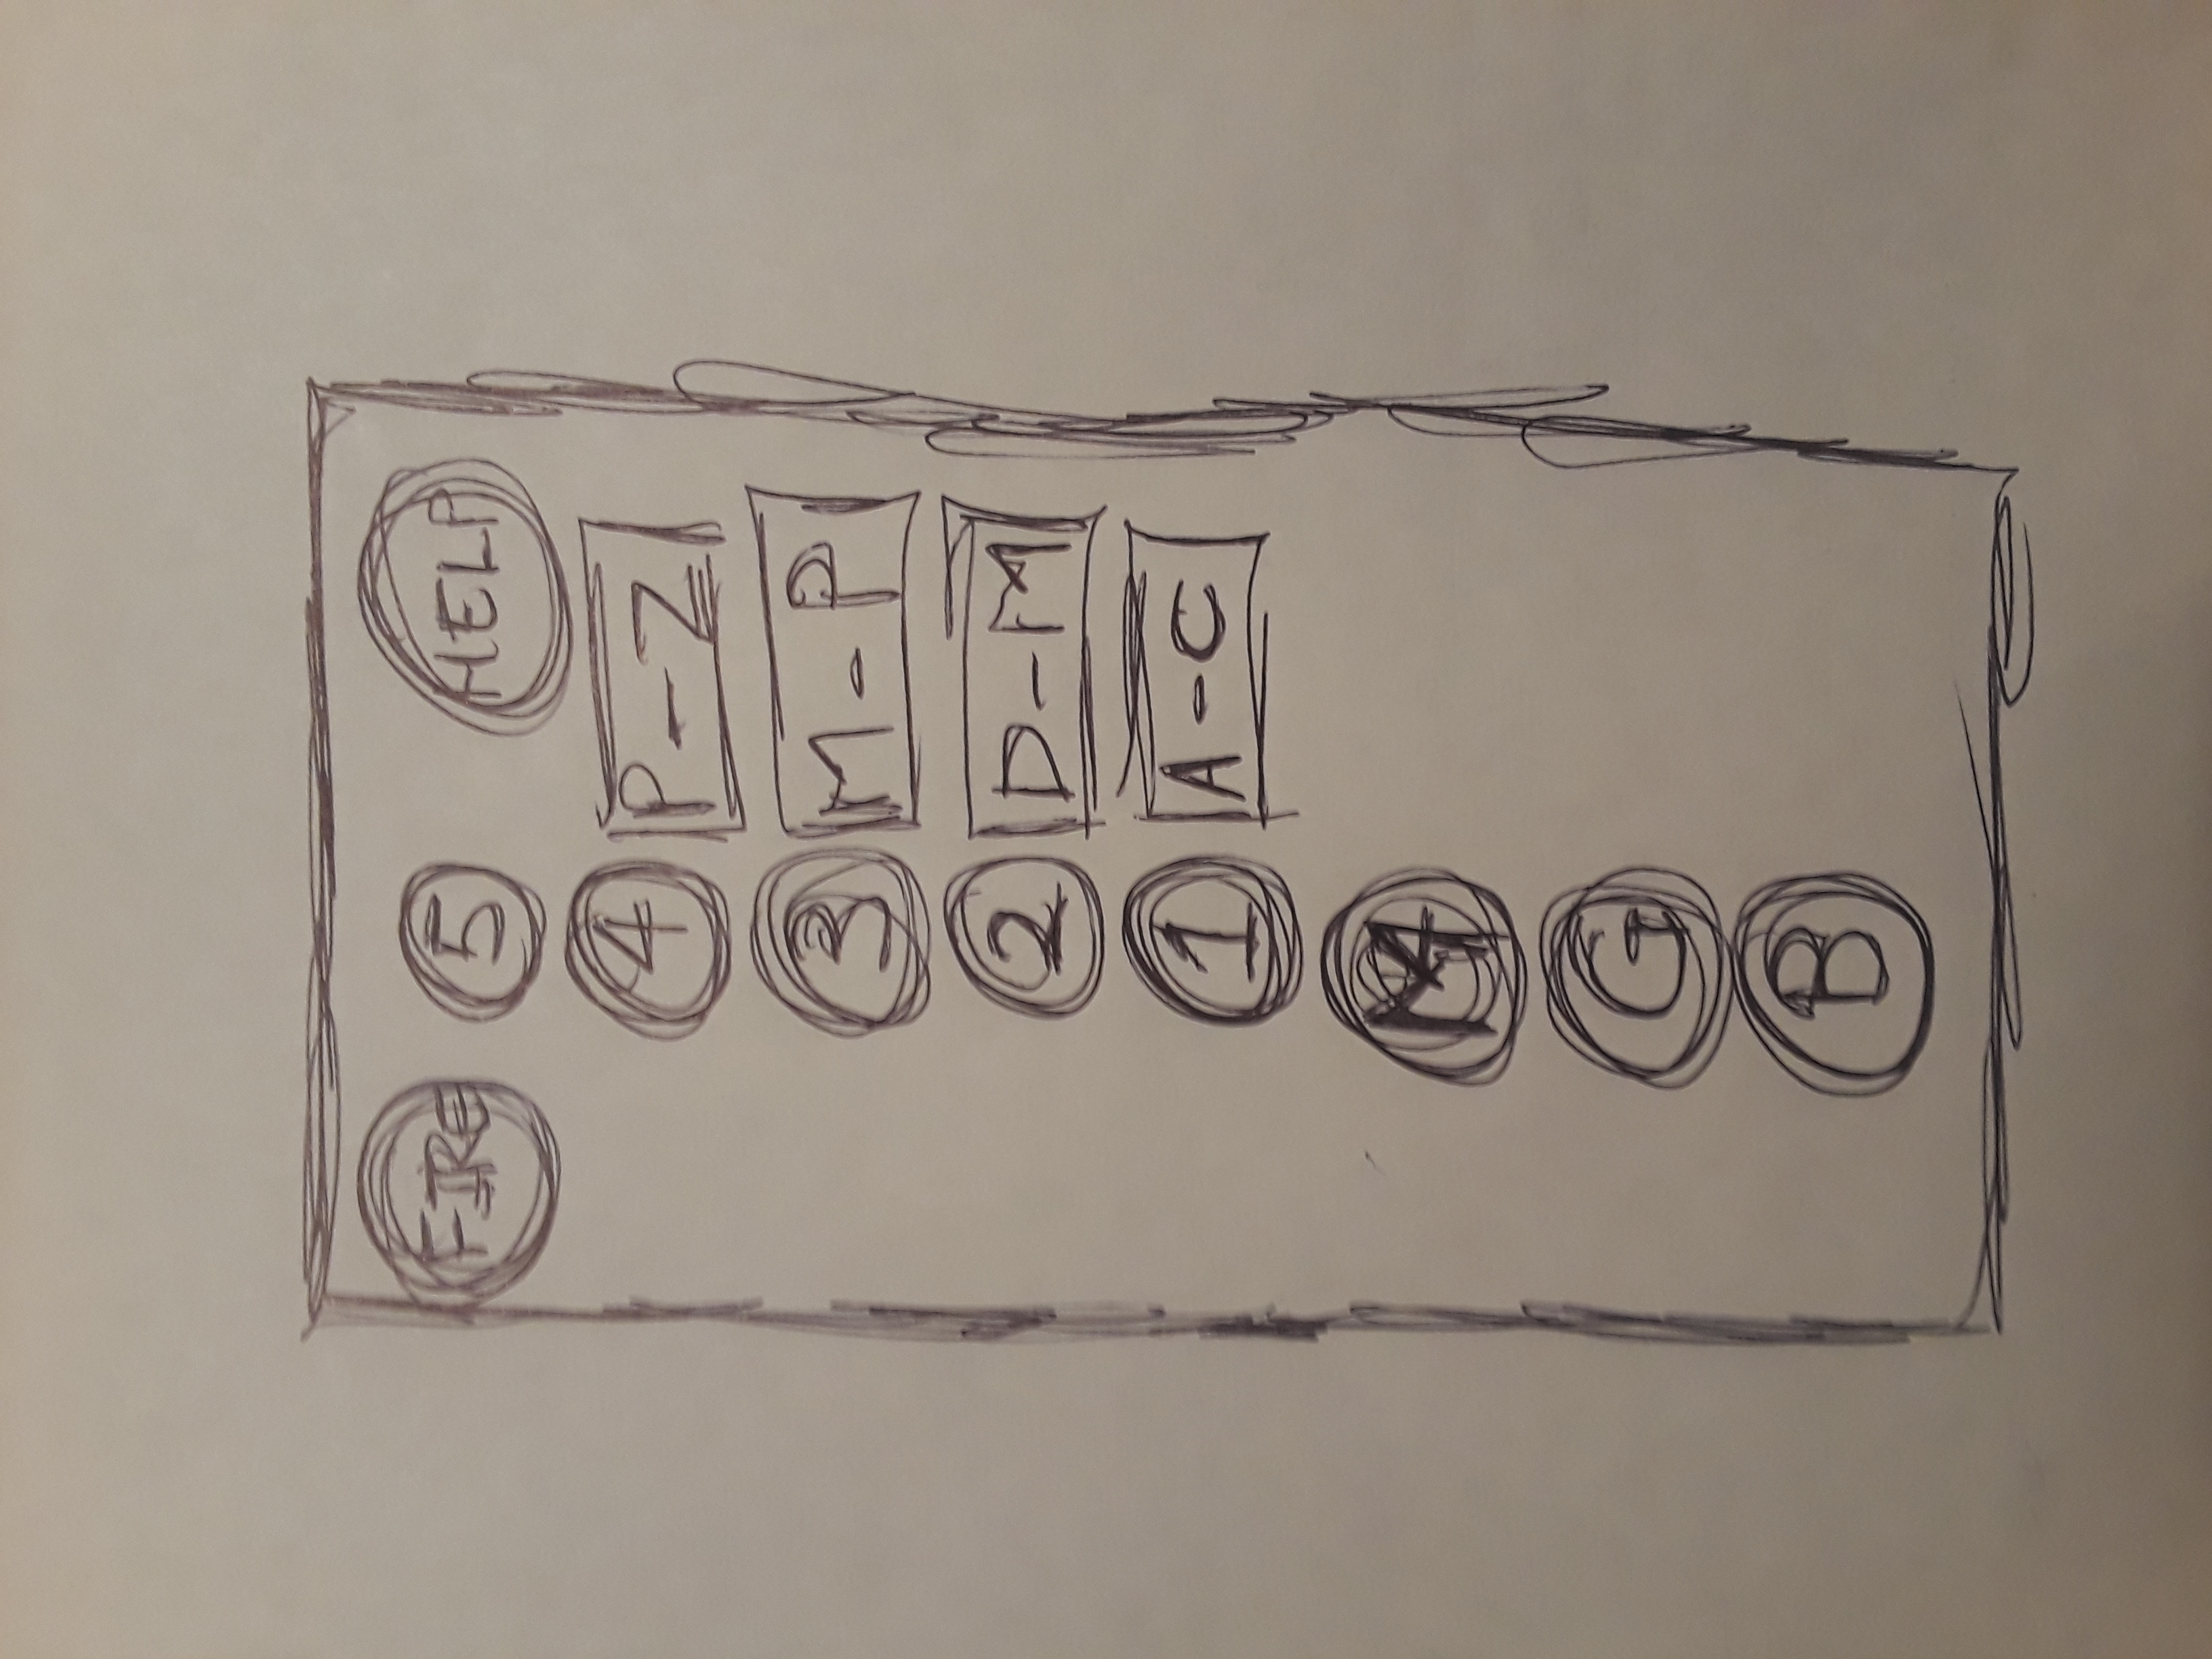 FIRE 5 HELP
4 P-Z
3 M-P
2 D-M
1 A-C
M
G
B